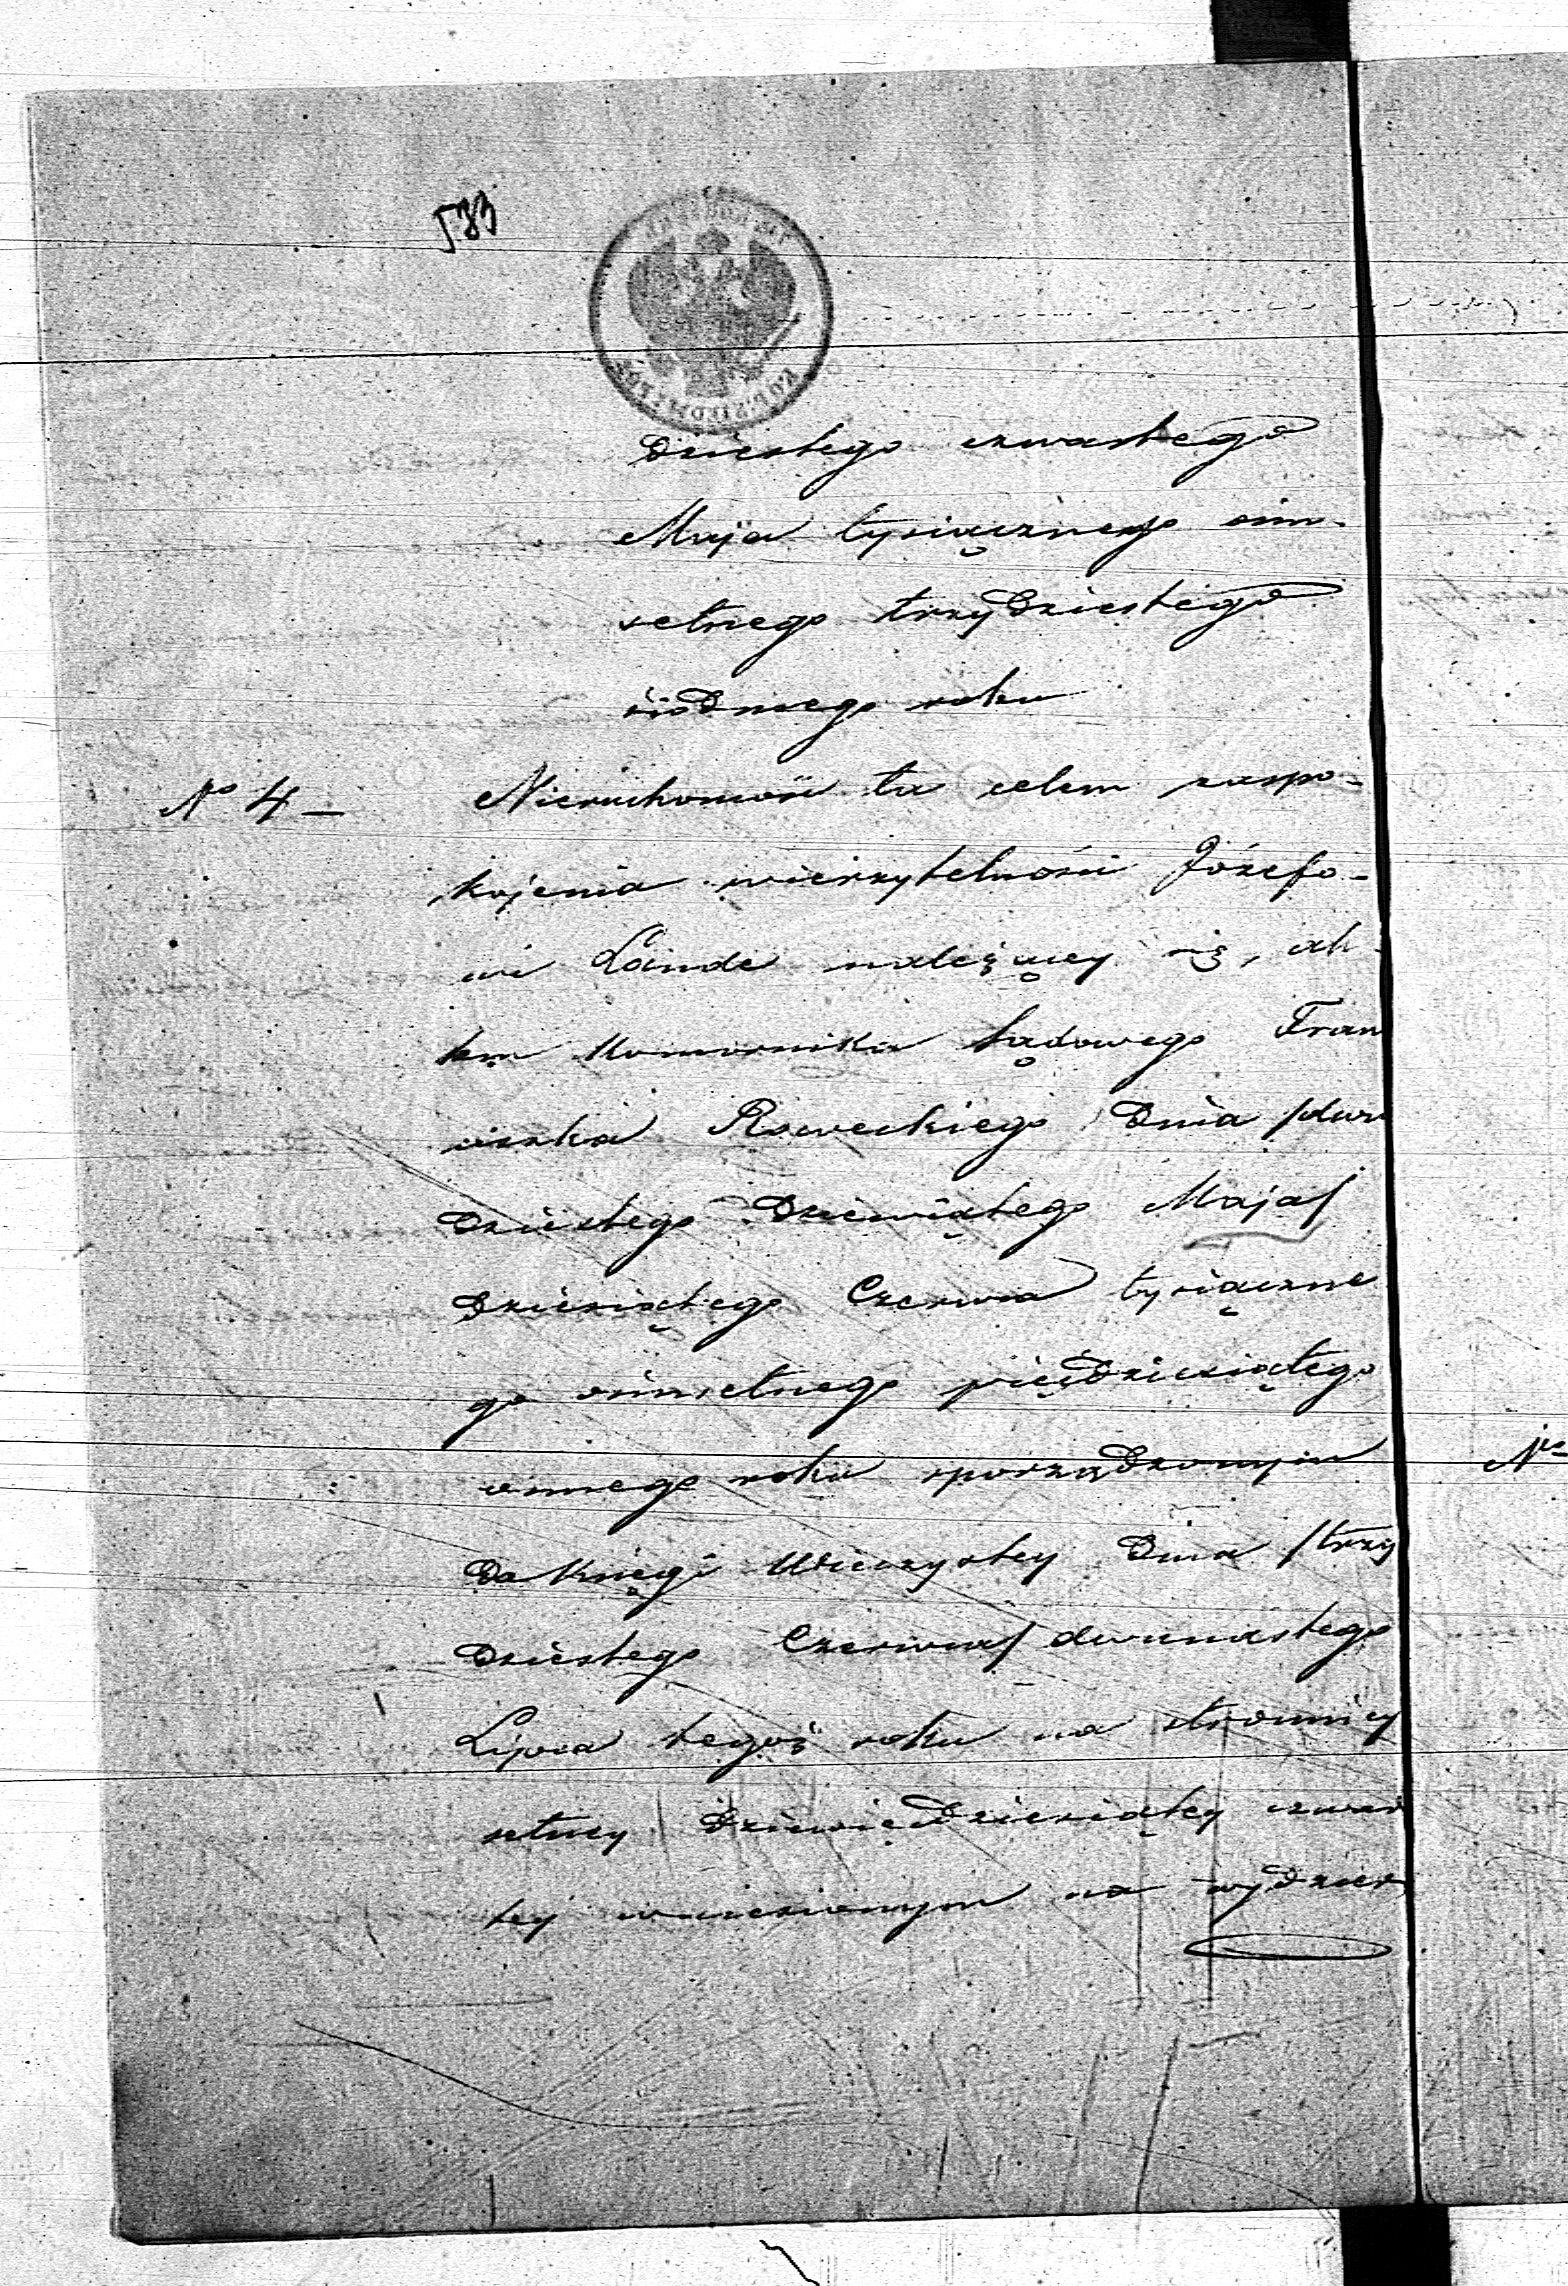 533
dziestego czwartego
Maja tysiącznego óśm-
setnego trzydziestego
siódmego roku
No 4 — Nieruchomość ta celem zaspo-
kojenia wierzytelności Józefo-
wi Lande należącey się, ak-
tem Komornika Sądowego Fran
ciszka Roweckiego dnia /dwu
dziestego dziewiątego Maja/
dziesiątego Czerwca tysiączne
go ósmsetnego pięćdziesiątego
ósmego roku sporządzonym
do Księgi Wieczystey dnia /trzy
dziestego Czerwca/ dwunastego
Lipca tegoż roku na stronnicy
setney dziewiędziesiątey czwar
tej wniesionym na wydzier
No